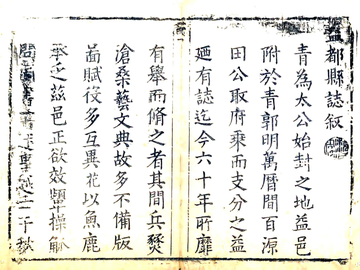 益都縣誌叙
青為太公始封之地益邑
附於青郭明萬曆間百源
田公取府乘而支分之益
廼有誌迄今六十年所靡
有舉而脩之者其間兵燹
滄桑藝文典故多不備版
啚賦役多互異花以魚鹿
承乏茲邑正欲效操觚